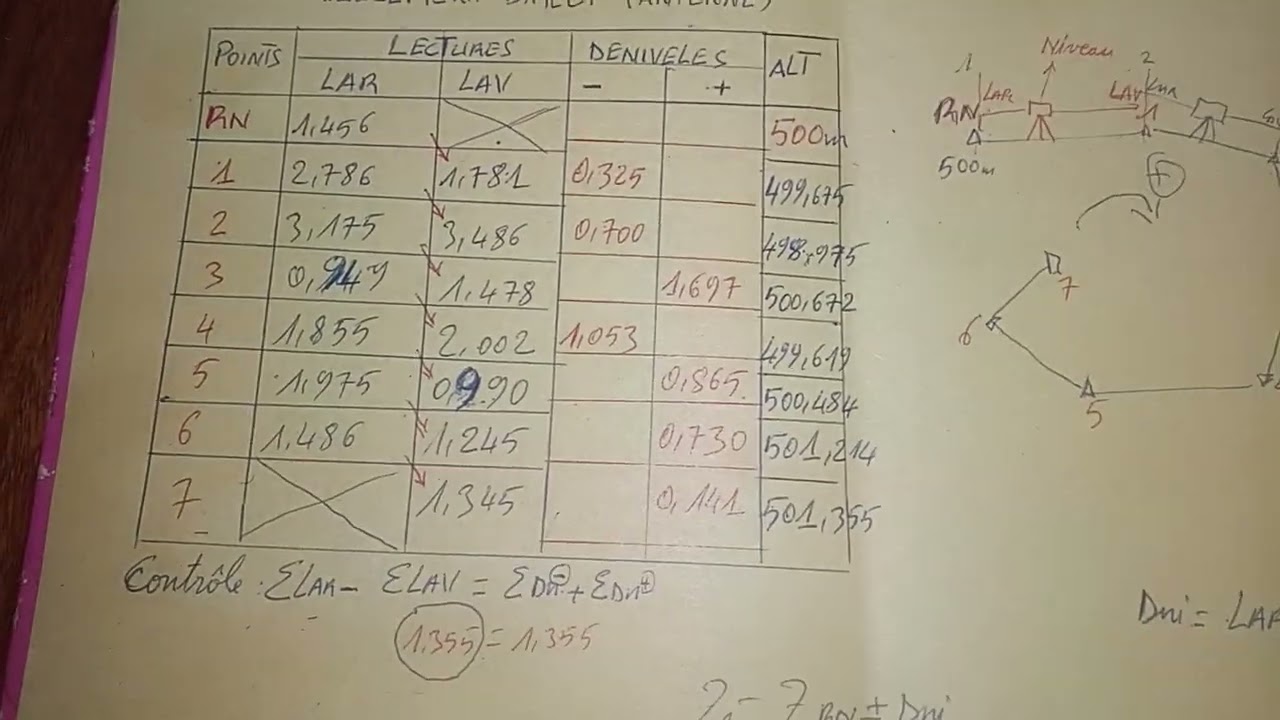 POINTS LECTURES DENIVELES ALT
LAR LAV - +
RN 1,456 500m
1 2,786 1,781 0,325 499,675
2 3,175 3,486 0,700 498,975
3 0,949 1,478 1,697 500,672
4 1,855 2,002 1,053 499,619
5 1,975 0,990 0,865 500,484
6 1,486 1,245 0,730 501,214
7 1,345 0,141 501,355
Contrôle : ΣLAR - ΣLAV = ΣDn⊖ + ΣDn⊕
1,355 = 1,355
Niveau
1 2
RN LAR LAV 1 LAR
500m
+
7
6
5
Dni = LAR
RN ± Dni